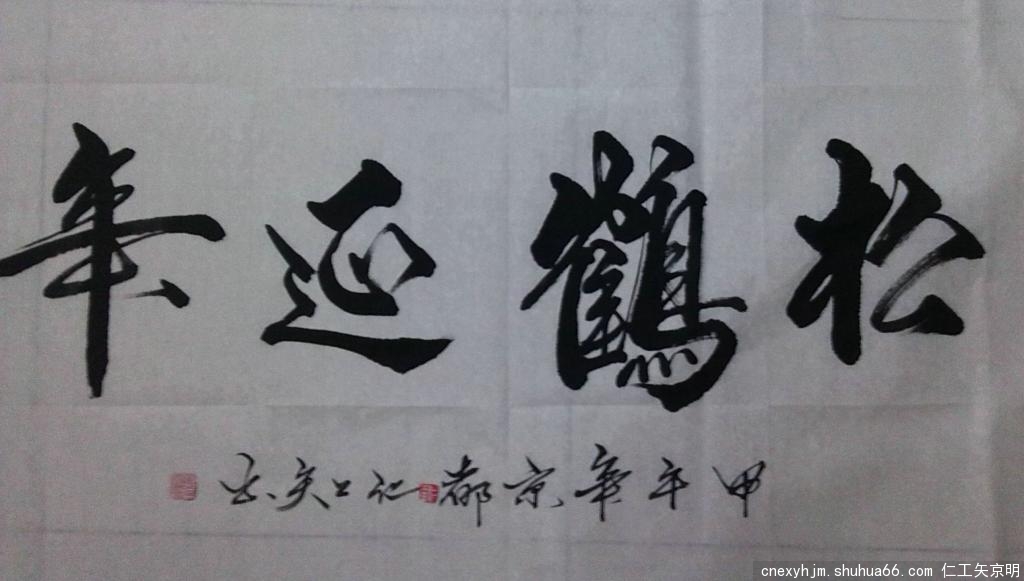 松鶴延年
甲午年京都仁工矢书
cnexyhjm.shuhua66.com 仁工矢京明